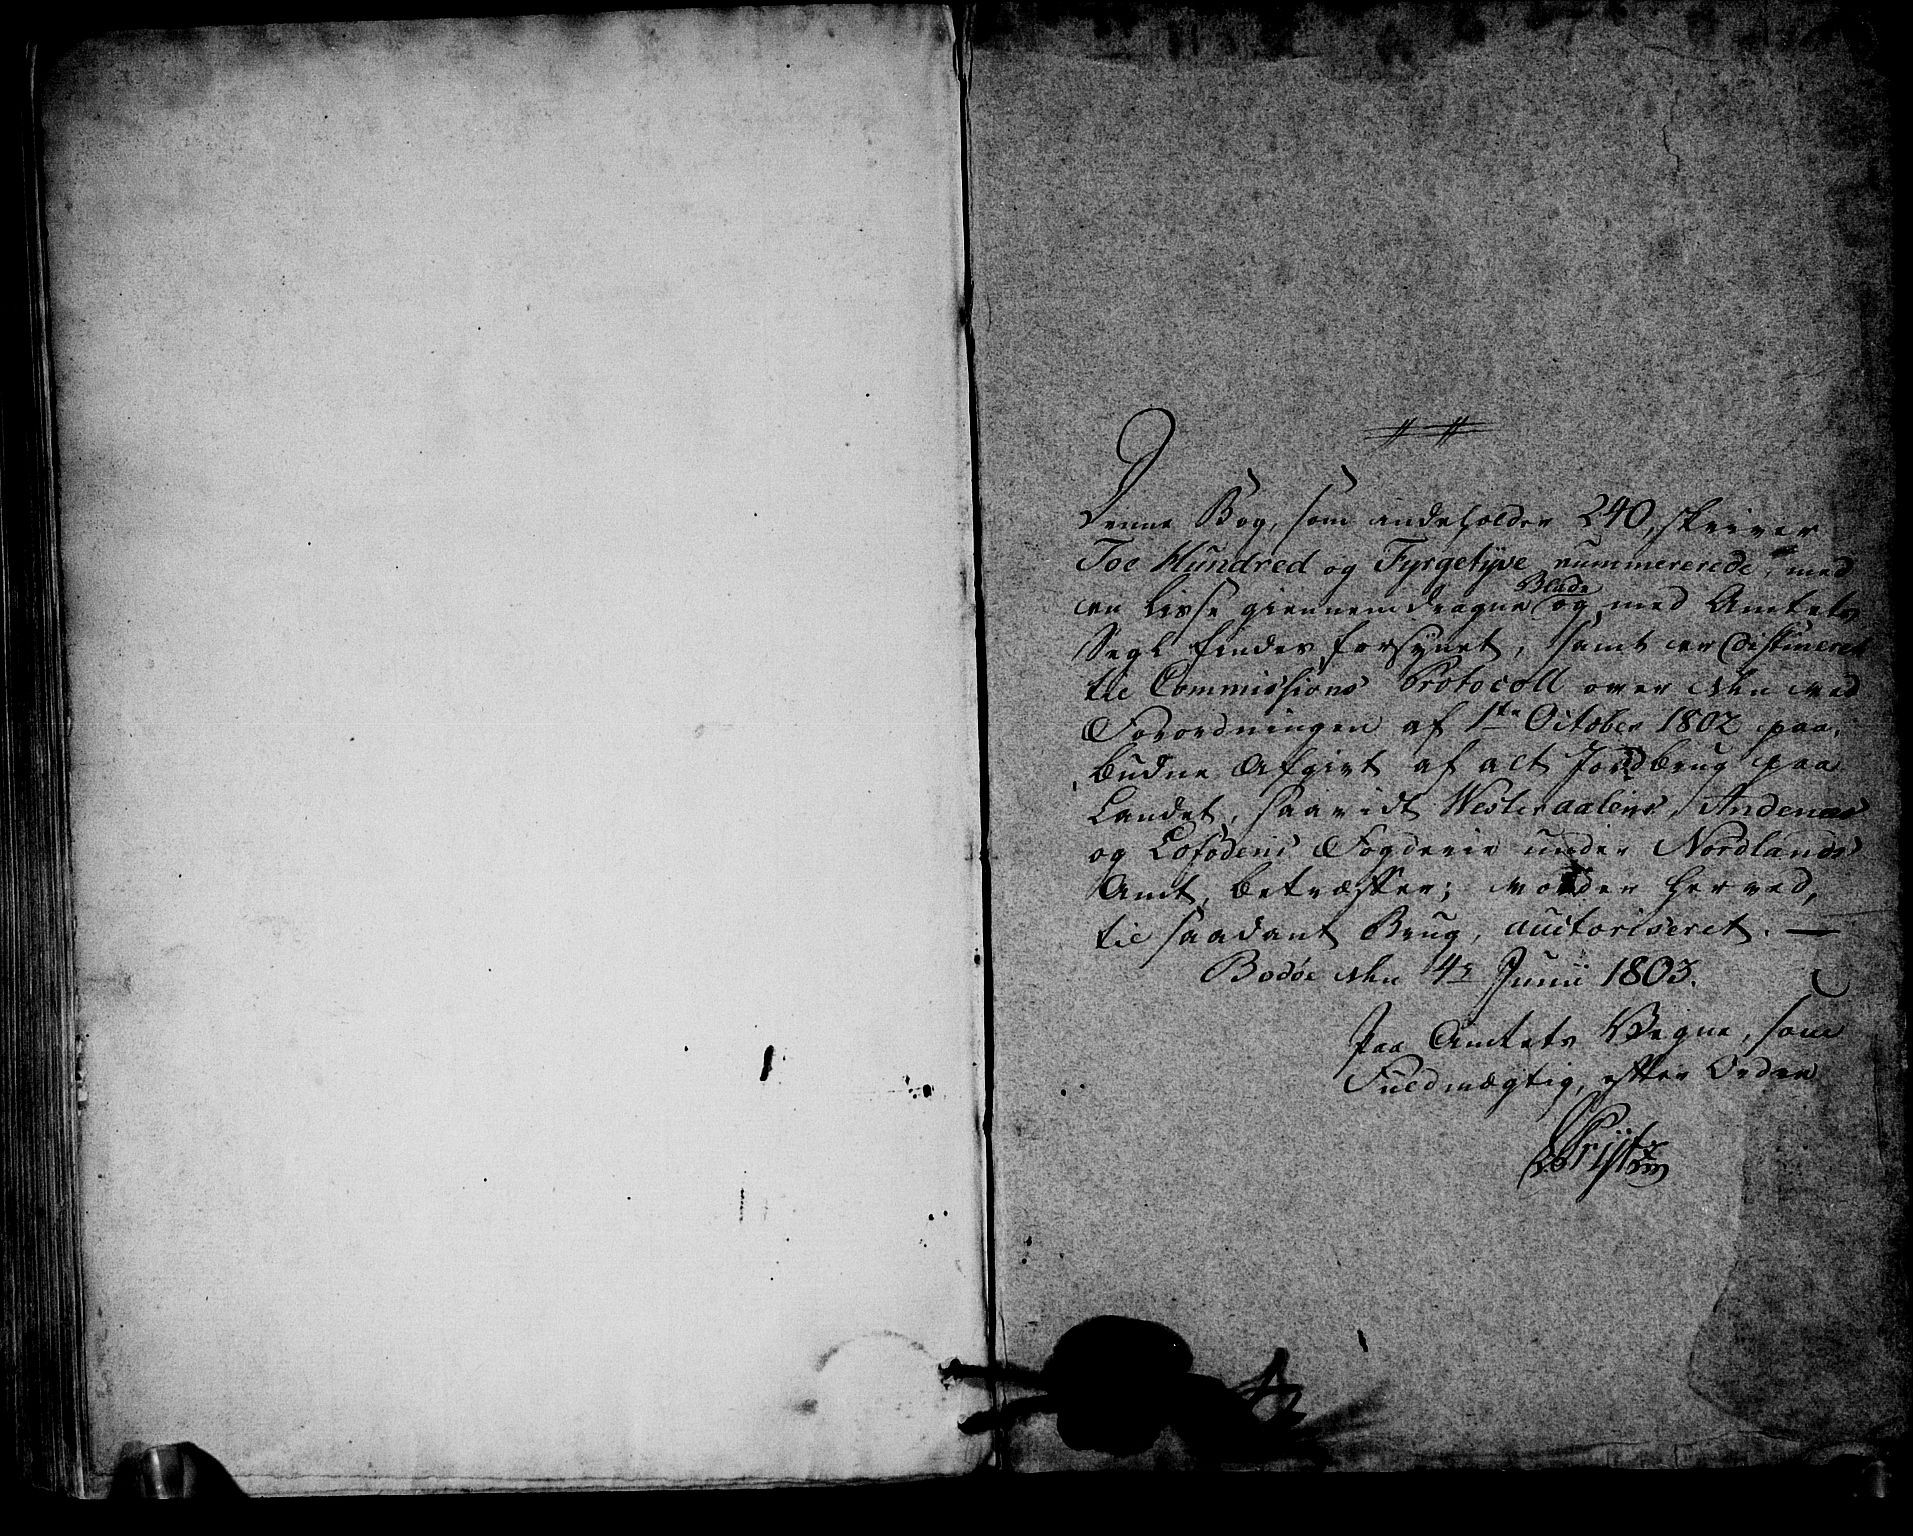 Denne Bog, som indeholder 240, skriver
Toe Hundred og Fyrgetyve nummererede, med
en Lisse giennemdragne Blade og med Amtets
Segl findes forsynet, samt er destineret
til Commissions Protocoll over den ved
Forordningen af 1te October 1802 paa-
budne Afgivt af alt Jordbrug paa
Landet, saavidt Westeraalens, Andenæs
og Lofodens Fogderie under Nordlands
Amt, betræffer; vorder herved,
til saadant Brug, auctoriseret. —
Bodøe den 4de Junii 1803.
Paa Amtets Vegne, som
Fuldmægtig, efter Orden